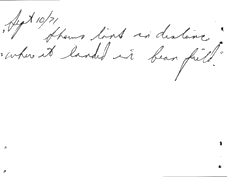 Sept 10/71
Shows line in distance
where it landed in bean field.